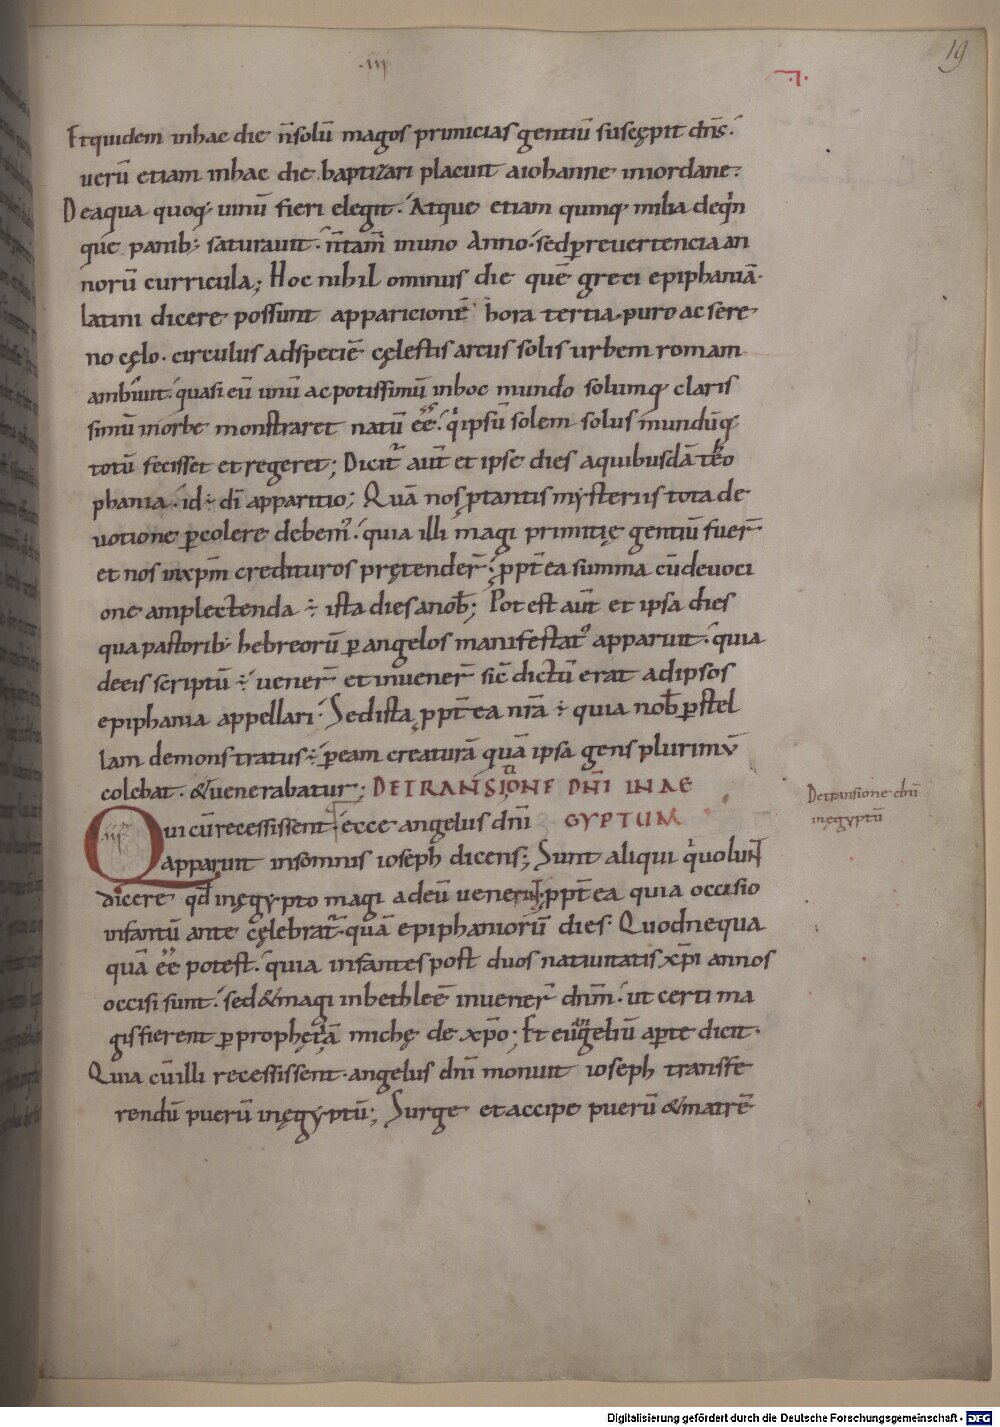 .iii.
19
.7.
Et quidem in hac die n̄ solū magos primicias gentiū suscępit dn̄s.
uerū etiam in hac die baptizari placuit a iohanne in iordane.
De aqua quoq; uinū fieri elegit. Atque etiam quinq; milia de qͥn
que panib; saturauit. n̄ tam̄ in uno Anno. sed p̱ reuertencia an
norū curricula; Hoc nihil ominus die quē greci epiphaniā.
latini dicere possunt apparicionē hora tertia. puro ac sere
no cęlo. circulus ad speciē cęlestis arcus solis urbem romam
ambiuit. quasi eū unū ac potissimū in hoc mundo solumq; claris
simū in orbe monstraret natū ee. qͥ ipsū solem solus mundūq;
totū fecisset et regeret; Dicit͛ aut̄ et ipse dies a quibusdā teo
phania. id ÷ dī apparitio; Quā nos p̱tantis mẏsteriis tota de
uotione p̱colere debem᾽. quia illi magi primitię gentiū fuer̄
et nos in xp̄m credituros prętender̄. p̱pt̄ ea summa cū deuoci
one amplectenda ÷ ista dies a nob̄; Potest aut̄ et ipsa dies
qua pastorib; hebreorū p̱ angelos manifestat᾽ apparuit. quia
de eis scriptū ÷ uener̄ et inuener̄ sic̄ dictū erat ad ipsos
epiphania appellari. Sed ista p̱pt̄ ea nr̄a ÷ quia nob̄ p̱ stel
lam demonstratus ÷ p̱ eam creaturā quā ipsa gens plurimū
colebat. & uenerabatur; DE TRANSITIONE DN̄I IN AE
De transione dn̄i
in ęgyptū
.iii.
Qui cū recessissent. ecce angelus dn̄i GYPTUM
apparuit in somnis ioseph dicens; Sunt aliqui qͥ uolunt
dicere qd̄ in ęgypto magi ad eū uenerunt. p̱pt̄ ea quia occisio
infantū ante cęlebrat͛. quā epiphaniorū dies. Quod nequa
quā ee potest. quia infantes post duos natiuitatis xp̄i annos
occisi sunt. sed & magi in bethleē inuener̄ dn̄m. ut certi ma
gis fierent p̱ prophętiā michę de xp̄o; Et euangeliū ap̱te dicit.
Quia cū illi recessissent. angelus dn̄i monuit ioseph transfe
rendū puerū in ęgyptū; Surge et accipe puerū & matrē
Digitalisierung gefördert durch die Deutsche Forschungsgemeinschaft - DFG